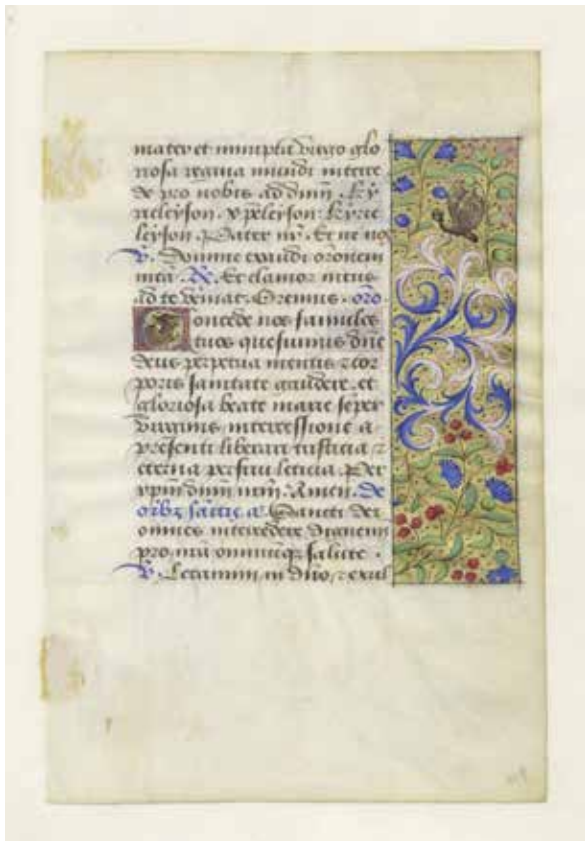 mater et innupta virgo glo
riosa regina mundi interce
de pro nobis ad dnm. Ky
rieleyson. xpeleyson. Kyrie
leyson. Pater nr. Et ne nos
V. Domine exaudi oronem
meā. R. Et clamor meus
ad te veniat. Oremus. oro
Concede nos famulos
tuos quesumus dne
deus perpetua mentis z cor
poris sanitate gaudere. et
gloriosa beate marie semper
virginis intercessione a
presenti liberari tristicia z
eterna perfrui leticia. Per
xpm dnm nrm. Amen. De
oibz sāctis a. Sancti dei
omnes intercedere dignemi
pro nrā omniūqz salute.
V. Letamini in dno, z exul